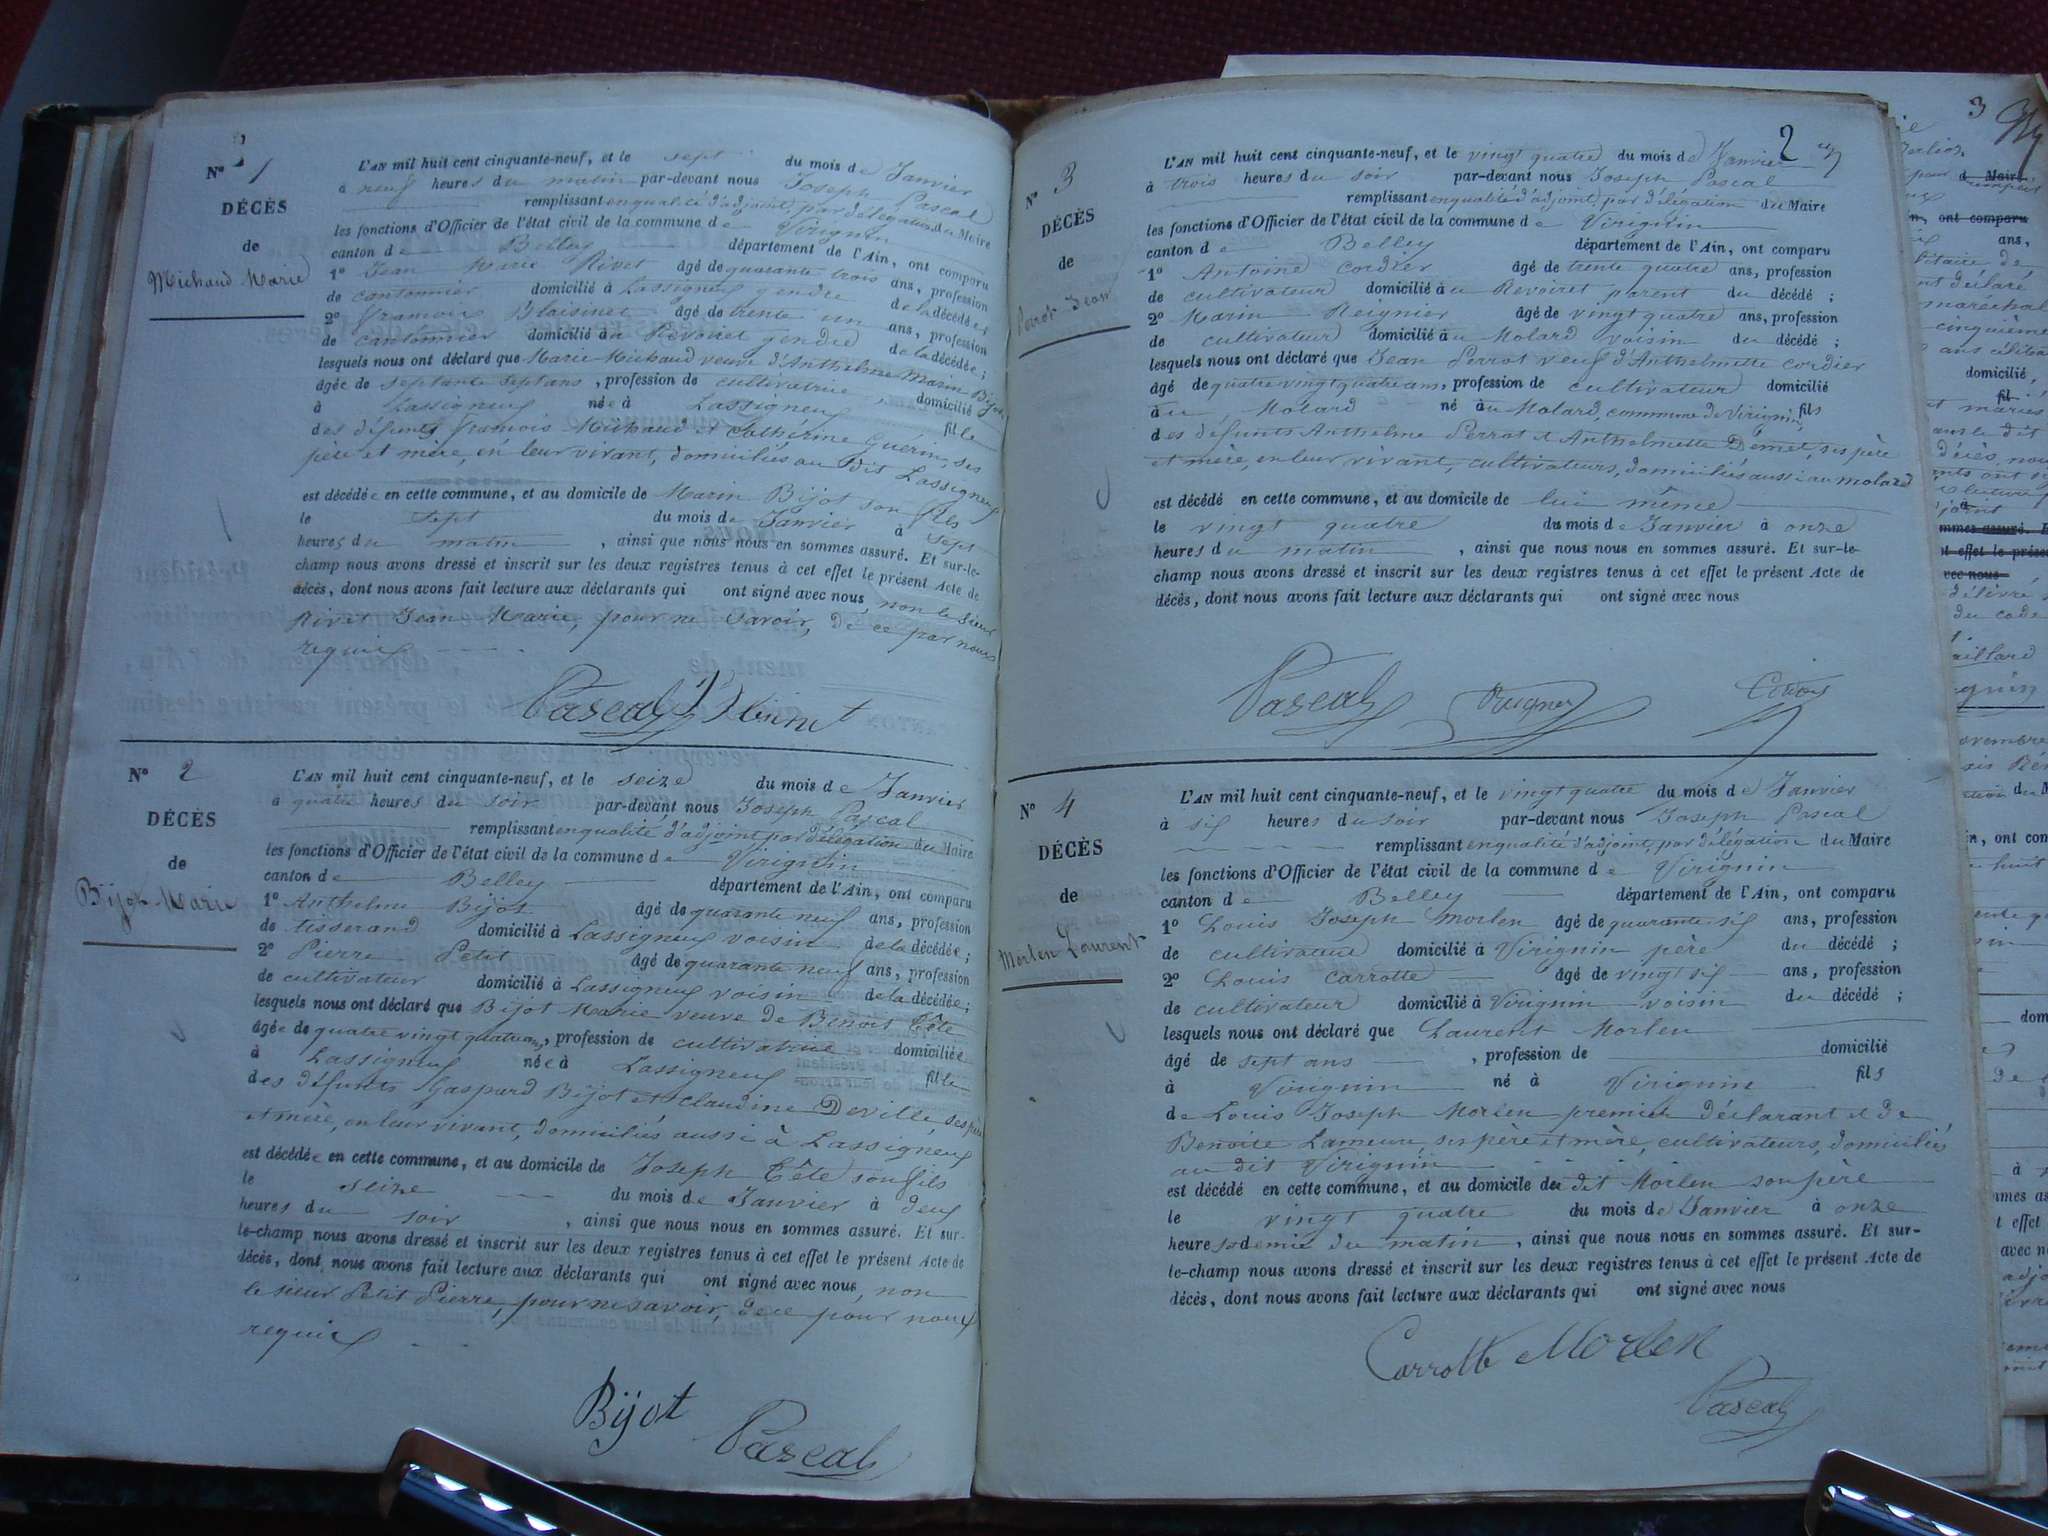 Nº 1
DÉCÈS
de
Michaud Marie
L'AN mil huit cent cinquante-neuf, et le sept du mois de Janvier
à neuf heures du matin par-devant nous Joseph Pascal
remplissant en qualité d'adjoint, par délégation du Maire
les fonctions d'Officier de l'état civil de la commune de Virignin
canton de Belley département de l'Ain, ont comparu
1º Jean Marie Rivet âgé de quarante trois ans, profession
de cantonnier domicilié à Lassigneux gendre de la décédée
2º François Bloisinet âgé de trente un ans, profession
de cantonnier domicilié au Revoiret gendre de la décédée;
lesquels nous ont déclaré que Marie Michaud veuve d'Anthelme Marin Bijot
âgée de septante sept ans, profession de cultivatrice, domicilié
à Lassigneux née à Lassigneux fille
des défunts François Michaud et Cathérine Guérin, ses
père et mère, en leur vivant, domiciliés au dit Lassigneux
est décédée en cette commune, et au domicile de Marin Bijot son fils
le sept du mois de Janvier à sept
heures du matin, ainsi que nous nous en sommes assuré. Et sur-le-
champ nous avons dressé et inscrit sur les deux registres tenus à cet effet le présent Acte de
décès, dont nous avons fait lecture aux déclarants qui ont signé avec nous, non le sieur
Rivet Jean Marie, pour ne savoir, de ce par nous
requis
Pascal
Nº 2
DÉCÈS
de
Bijot Marie
L'AN mil huit cent cinquante-neuf, et le seize du mois de Janvier
à quatre heures du soir par-devant nous Joseph Pascal
remplissant en qualité d'adjoint par délégation du Maire
les fonctions d'Officier de l'état civil de la commune de Virignin
canton de Belley département de l'Ain, ont comparu
1º Anthelme Bijot âgé de quarante neuf ans, profession
de tisserand domicilié à Lassigneux voisin de la décédée;
2º Pierre Petit âgé de quarante neuf ans, profession
de cultivateur domicilié à Lassigneux voisin de la décédée;
lesquels nous ont déclaré que Bijot Marie veuve de Benoit Tête
âgée de quatre vingt quatre ans, profession de cultivatrice domiciliée
à Lassigneux née à Lassigneux fille
des défunts Gaspard Bijot et Claudine Deville, ses père
et mère, en leur vivant, domiciliés aussi à Lassigneux
est décédée en cette commune, et au domicile de Joseph Tête son fils
le seize du mois de Janvier à deux
heures du soir, ainsi que nous nous en sommes assuré. Et sur-
le-champ nous avons dressé et inscrit sur les deux registres tenus à cet effet le présent Acte de
décès, dont nous avons fait lecture aux déclarants qui ont signé avec nous, non
le sieur Petit Pierre, pour ne savoir, de ce pour nous
requis
Bijot Pascal
2
Nº 3
DÉCÈS
de
Perrot Jean
L'AN mil huit cent cinquante-neuf, et le vingt quatre du mois de Janvier
à trois heures du soir par-devant nous Joseph Pascal
remplissant en qualité d'adjoint, par délégation du Maire
les fonctions d'Officier de l'état civil de la commune de Virignin
canton de Belley département de l'Ain, ont comparu
1º Antoine Cordier âgé de trente quatre ans, profession
de cultivateur domicilié au Revoiret parent du décédé;
2º Marin Reignier âgé de vingt quatre ans, profession
de cultivateur domicilié au Molard voisin du décédé;
lesquels nous ont déclaré que Jean Perrot veuf d'Anthelmette Cordier
âgé de quatre vingt quatre ans, profession de cultivateur domicilié
au Molard né au Molard, commune de Virignin, fils
des défunts Anthelme Perrot et Anthelmette Demet, ses père
et mère, en leur vivant, cultivateurs, domiciliés aussi au molard
est décédé en cette commune, et au domicile de lui même
le vingt quatre du mois de Janvier à onze
heures du matin, ainsi que nous nous en sommes assuré. Et sur-le-
champ nous avons dressé et inscrit sur les deux registres tenus à cet effet le présent Acte de
décès, dont nous avons fait lecture aux déclarants qui ont signé avec nous
Pascal
Nº 4
DÉCÈS
de
Morlen Laurent
L'AN mil huit cent cinquante-neuf, et le vingt quatre du mois de Janvier
à six heures du soir par-devant nous Joseph Pascal
remplissant en qualité d'adjoint, par délégation du Maire
les fonctions d'Officier de l'état civil de la commune de Virignin
canton de Belley département de l'Ain, ont comparu
1º Louis Joseph Morlen âgé de quarante six ans, profession
de cultivateur domicilié à Virignin père du décédé;
2º Louis Carrotte âgé de vingt six ans, profession
de cultivateur domicilié à Virignin voisin du décédé;
lesquels nous ont déclaré que Laurent Morlen
âgé de sept ans, profession de domicilié
à Virignin né à Virignin fils
de Louis Joseph Morlen premier déclarant et de
Benoite Lameure, ses père et mère, cultivateurs, domiciliés
au dit Virignin
est décédé en cette commune, et au domicile du dit Morlen son père
le vingt quatre du mois de Janvier à onze
heures demie du matin, ainsi que nous nous en sommes assuré. Et sur-
le-champ nous avons dressé et inscrit sur les deux registres tenus à cet effet le présent Acte de
décès, dont nous avons fait lecture aux déclarants qui ont signé avec nous
Carrotte Morlen
Pascal
3